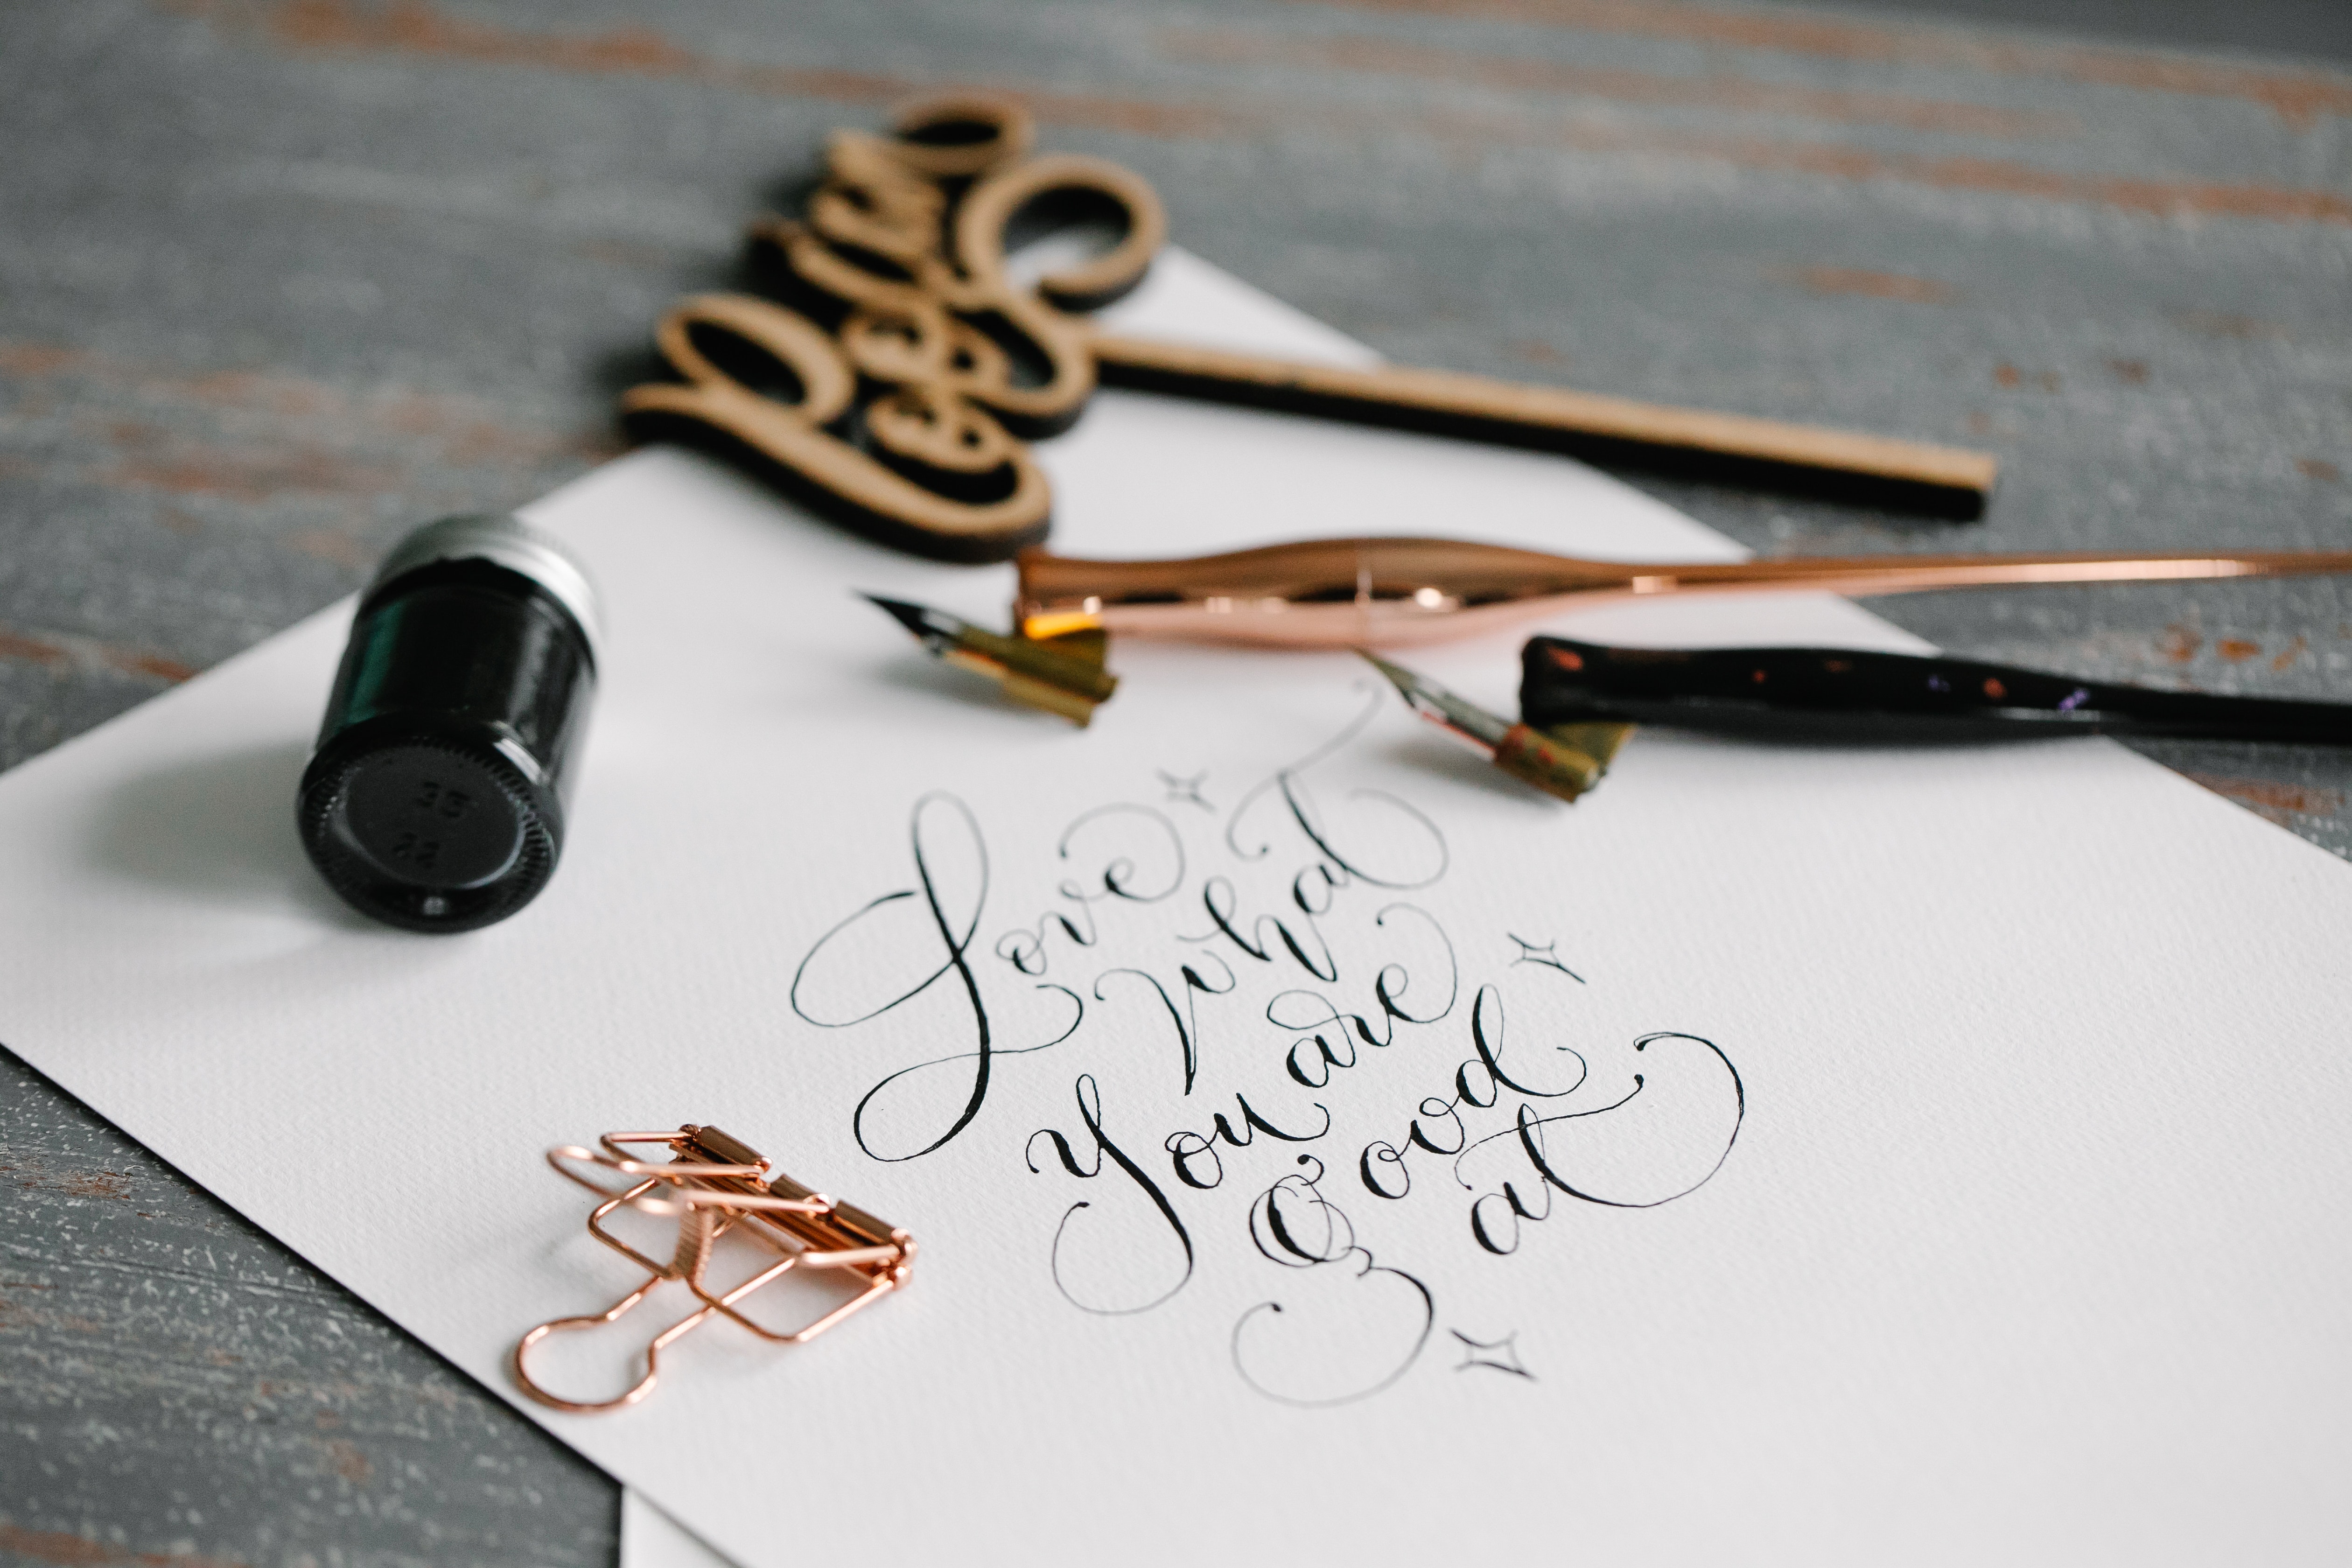 Love
What
You are
Good
at